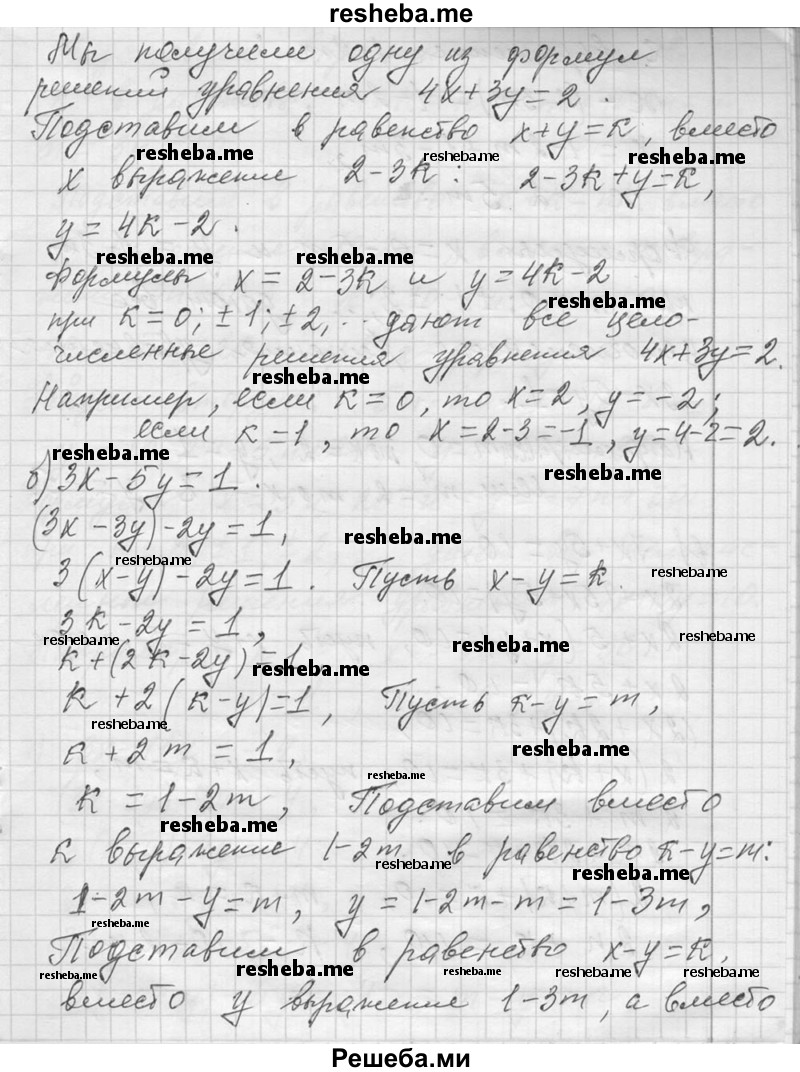 resheba.me
Мы получили одну из формул
решений уравнения 4x+3y=2.
Подставим в равенство x+y=k, вместо
resheba.me resheba.me resheba.me
x выражение 2-3k: 2-3k+y=k,
y=4k-2.
resheba.me resheba.me
Формулы x=2-3k и y=4k-2
resheba.me
при k=0; ±1; ±2,... дают все цело-
численные решения уравнения 4x+3y=2.
resheba.me
Например, если k=0, то x=2, y=-2;
если k=1, то x=2-3=-1, y=4-2=2.
resheba.me
б) 3x-5y=1.
resheba.me
(3x-3y)-2y=1,
resheba.me
resheba.me
3(x-y)-2y=1. Пусть x-y=k.
resheba.me
3k-2y=1,
resheba.me resheba.me resheba.me
k+(2k-2y)=1
resheba.me
k+2(k-y)=1, Пусть k-y=m,
resheba.me
k+2m=1,
resheba.me
resheba.me
k=1-2m, Подставим вместо
resheba.me
k выражение 1-2m в равенство k-y=m:
resheba.me resheba.me
1-2m-y=m, y=1-2m-m=1-3m,
resheba.me resheba.me
Подставим в равенство x-y=k,
resheba.me resheba.me resheba.me resheba.me resheba.me
вместо y выражение 1-3m, а вместо
Решеба.ми